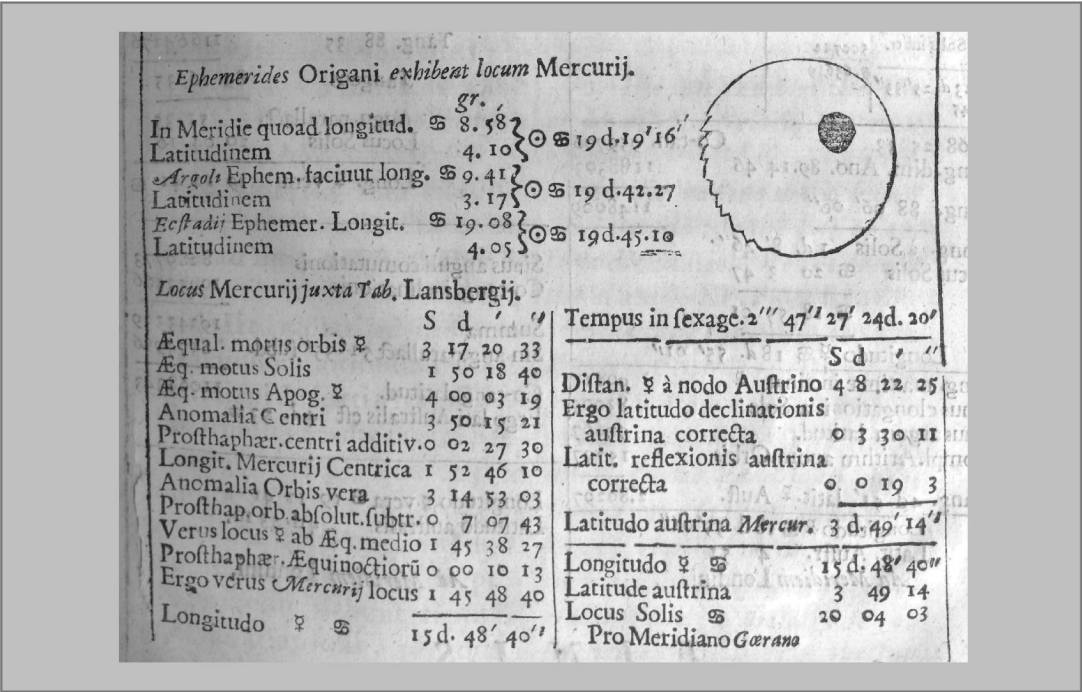 Ephemerides Origani exhibent locum Mercurij.
gr. ′
In Meridie quoad longitud. ♋ 8. 58 ⊙ ♋ 19 d. 19′ 16″
Latitudinem 4. 10
Argoli Ephem. faciuut long. ♋ 9. 41 ⊙ ♋ 19 d. 42. 27
Latitudinem 3. 17
Ecſtadij Ephemer. Longit. ♋ 19. 08 ⊙ ♋ 19d. 45. 10
Latitudinem 4. 05
Locus Mercurij juxta Tab. Lansbergij.
S d ′ ″
Æqual. motus orbis ☿ 3 17 20 33
Æq. motus Solis 1 50 18 40
Æq. motus Apog. ☿ 4 00 03 19
Anomalia Centri 3 50 15 21
Proſthaphær. centri additiv. 0 02 27 30
Longit. Mercurij Centrica 1 52 46 10
Anomalia Orbis vera 3 14 53 03
Proſthap. orb. abſolut. ſubtr. 0 7 07 43
Verus locus ☿ ab Æq. medio 1 45 38 27
Proſthaphær. Æquinoctiorū 0 00 10 13
Ergo verus Mercurij locus 1 45 48 40
Longitudo ☿ ♋ 15 d. 48′ 40″
Tempus in ſexage. 2‴ 47″ 27′ 24d. 20′
S d ′ ″
Diſtan. ☿ à nodo Auſtrino 4 8 22 25
Ergo latitudo declinationis
auſtrina correcta 0 3 30 11
Latit. reflexionis auſtrina
correcta 0 0 19 3
Latitudo auſtrina Mercur. 3 d. 49′ 14″
Longitudo ☿ ♋ 15 d. 48′ 40″
Latitude auſtrina 3 49 14
Locus Solis ♋ 20 04 03
Pro Meridiano Gœrano